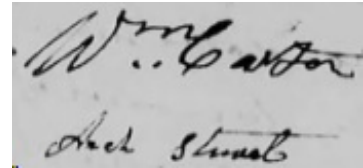 Wm Carter
Arch Stuart